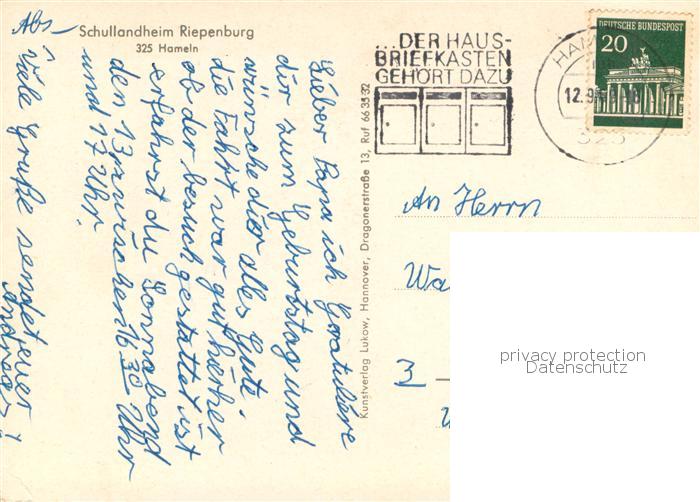 Abs
Schullandheim Riepenburg
325 Hameln
Lieber Papa ich Gratuliere
dir zum Geburtstag und
wünsche dir alles Gute.
die Fahrt war gut hierher
ob der besuch gestattet ist
erfährst du Sonnabend
den 13 zwischen 16 30 Uhr
und 17 Uhr.
Viele Grüße sendet euer
Andreas
Kunstverlag Lukow, Hannover, Dragonerstraße 13, Ruf 66 35 32
...DER HAUS-
BRIEFKASTEN
GEHÖRT DAZU
HAM
12.9
325
DEUTSCHE BUNDESPOST
20
An Herrn
Wa
3
privacy protection
Datenschutz